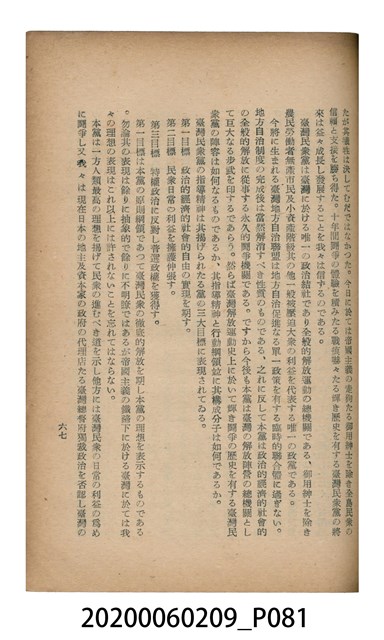 たが其犧牲は決してむだではなかつた。今日に於ては帝國主義の走狗たる御用紳士を除き全島民衆の
信頼と支援を勝ち得た。十年間鬪爭の體驗を積みたる戰績輝々たる輝き歷史を有する臺灣民衆黨の將
來は益々成長し發展することを我々は信ずるのである。
臺灣民衆黨は臺灣に於ける唯一の政治結社であり全般的解放運動の總機關である、御用紳士を除き
農民勞働者無產市民及小資產階級其の他一般被壓迫大衆の利益を代表する唯一の政黨である。
今將に生まれる臺灣地方自治聯盟は地方自治促進なる單一政策を有する臨時的聯合體に過ぎない。
地方自治制度の完成後は當然解消すべき性質のものである、之れに反して本黨は政治的經濟的社會的
の全般的解放に從事する永久的鬪爭機關である。ですから今後も本黨は臺灣の解放陣營の總機關とし
て巨大なる步武を印するであらう。然らば臺灣解放運動史上に於いて輝き鬪爭の歷史を有する臺灣民
衆黨の陣容は如何なるものであるか、其指導精神と行動綱領並に其構成分子は如何であるか。
臺灣民衆黨の指導精神は其揭げられたる黨の三大目標に表現されてゐる。
第一目標 政治的經濟的社會的自由の實現を期す。
第二目標 民衆日常の利益を擁護伸張す。
第三目標 特權政治に反對し普選政權を獲得す。
第一目標は本黨の原則綱領であつて臺灣民衆の徹底的解放を期し本黨の理想を表示するものである
。勿論其の表現は餘りに抽象的で餘りに不明瞭ではあるが帝國主義の鐵蹄下に於ける臺灣に於ては我
々の理想の表現はこれ以上には許されないことを忘れてはならない。
本黨は一方人類最高の理想を揭げて民衆の進むべき道を示し他方には臺灣民衆の日常の利益の爲め
に鬪爭し又我々は現在日本の地主及資本家の政府の代理店たる臺灣總督府現蔵政治を否認し臺灣の
六七
20200060209_P081